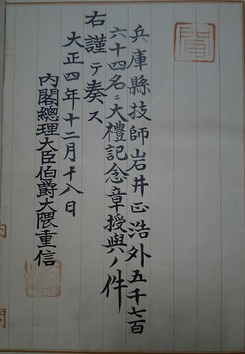 聞
兵庫縣技師岩井正浩外五千七百
六十四名ニ大禮記念章授與ノ件
右謹テ奏ス
大正四年十二月十八日
內閣總理大臣伯爵大隈重信
內閣